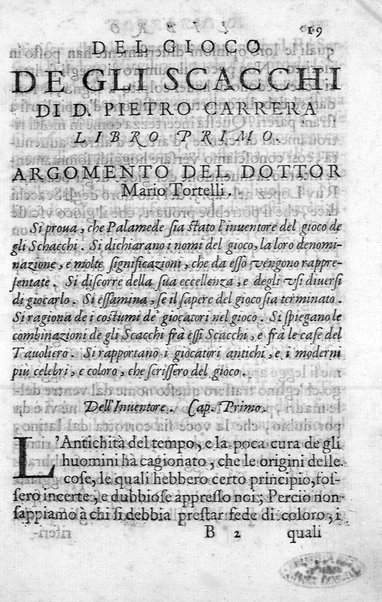 19
DEL GIOCO
DE GLI SCACCHI
DI D. PIETRO CARRERA
LIBRO PRIMO.
ARGOMENTO DEL DOTTOR
Mario Tortelli.
Si proua, che Palamede sia stato l'inuentore del gioco de
gli Schacchi. Si dichiarano i nomi del gioco, la loro denomi-
nazione, e molte significazioni, che da esso vengono rappre-
sentate. Si discorre della sua eccellenza, e degli vsi diuersi
di giocarlo. Si essamina, se il sapere del gioco sia terminato.
Si ragiona de i costumi de' giocatori nel gioco. Si spiegano le
combinazioni de gli Scacchi frà essi Scacchi, e frà le case del
Tauoliero. Si rapportano i giocatori antichi, e i moderni
più celebri, e coloro, che scrissero del gioco.
Dell'Inuentore. Cap. Primo.
L'Antichità del tempo, e la poca cura de gli
huomini hà cagionato, che le origini delle
cose, le quali hebbero certo principio, fos-
sero incerte, e dubbiose appresso noi; Percio non
sappiamo à chi si debbia prestar fede di coloro, i
B 2 quali